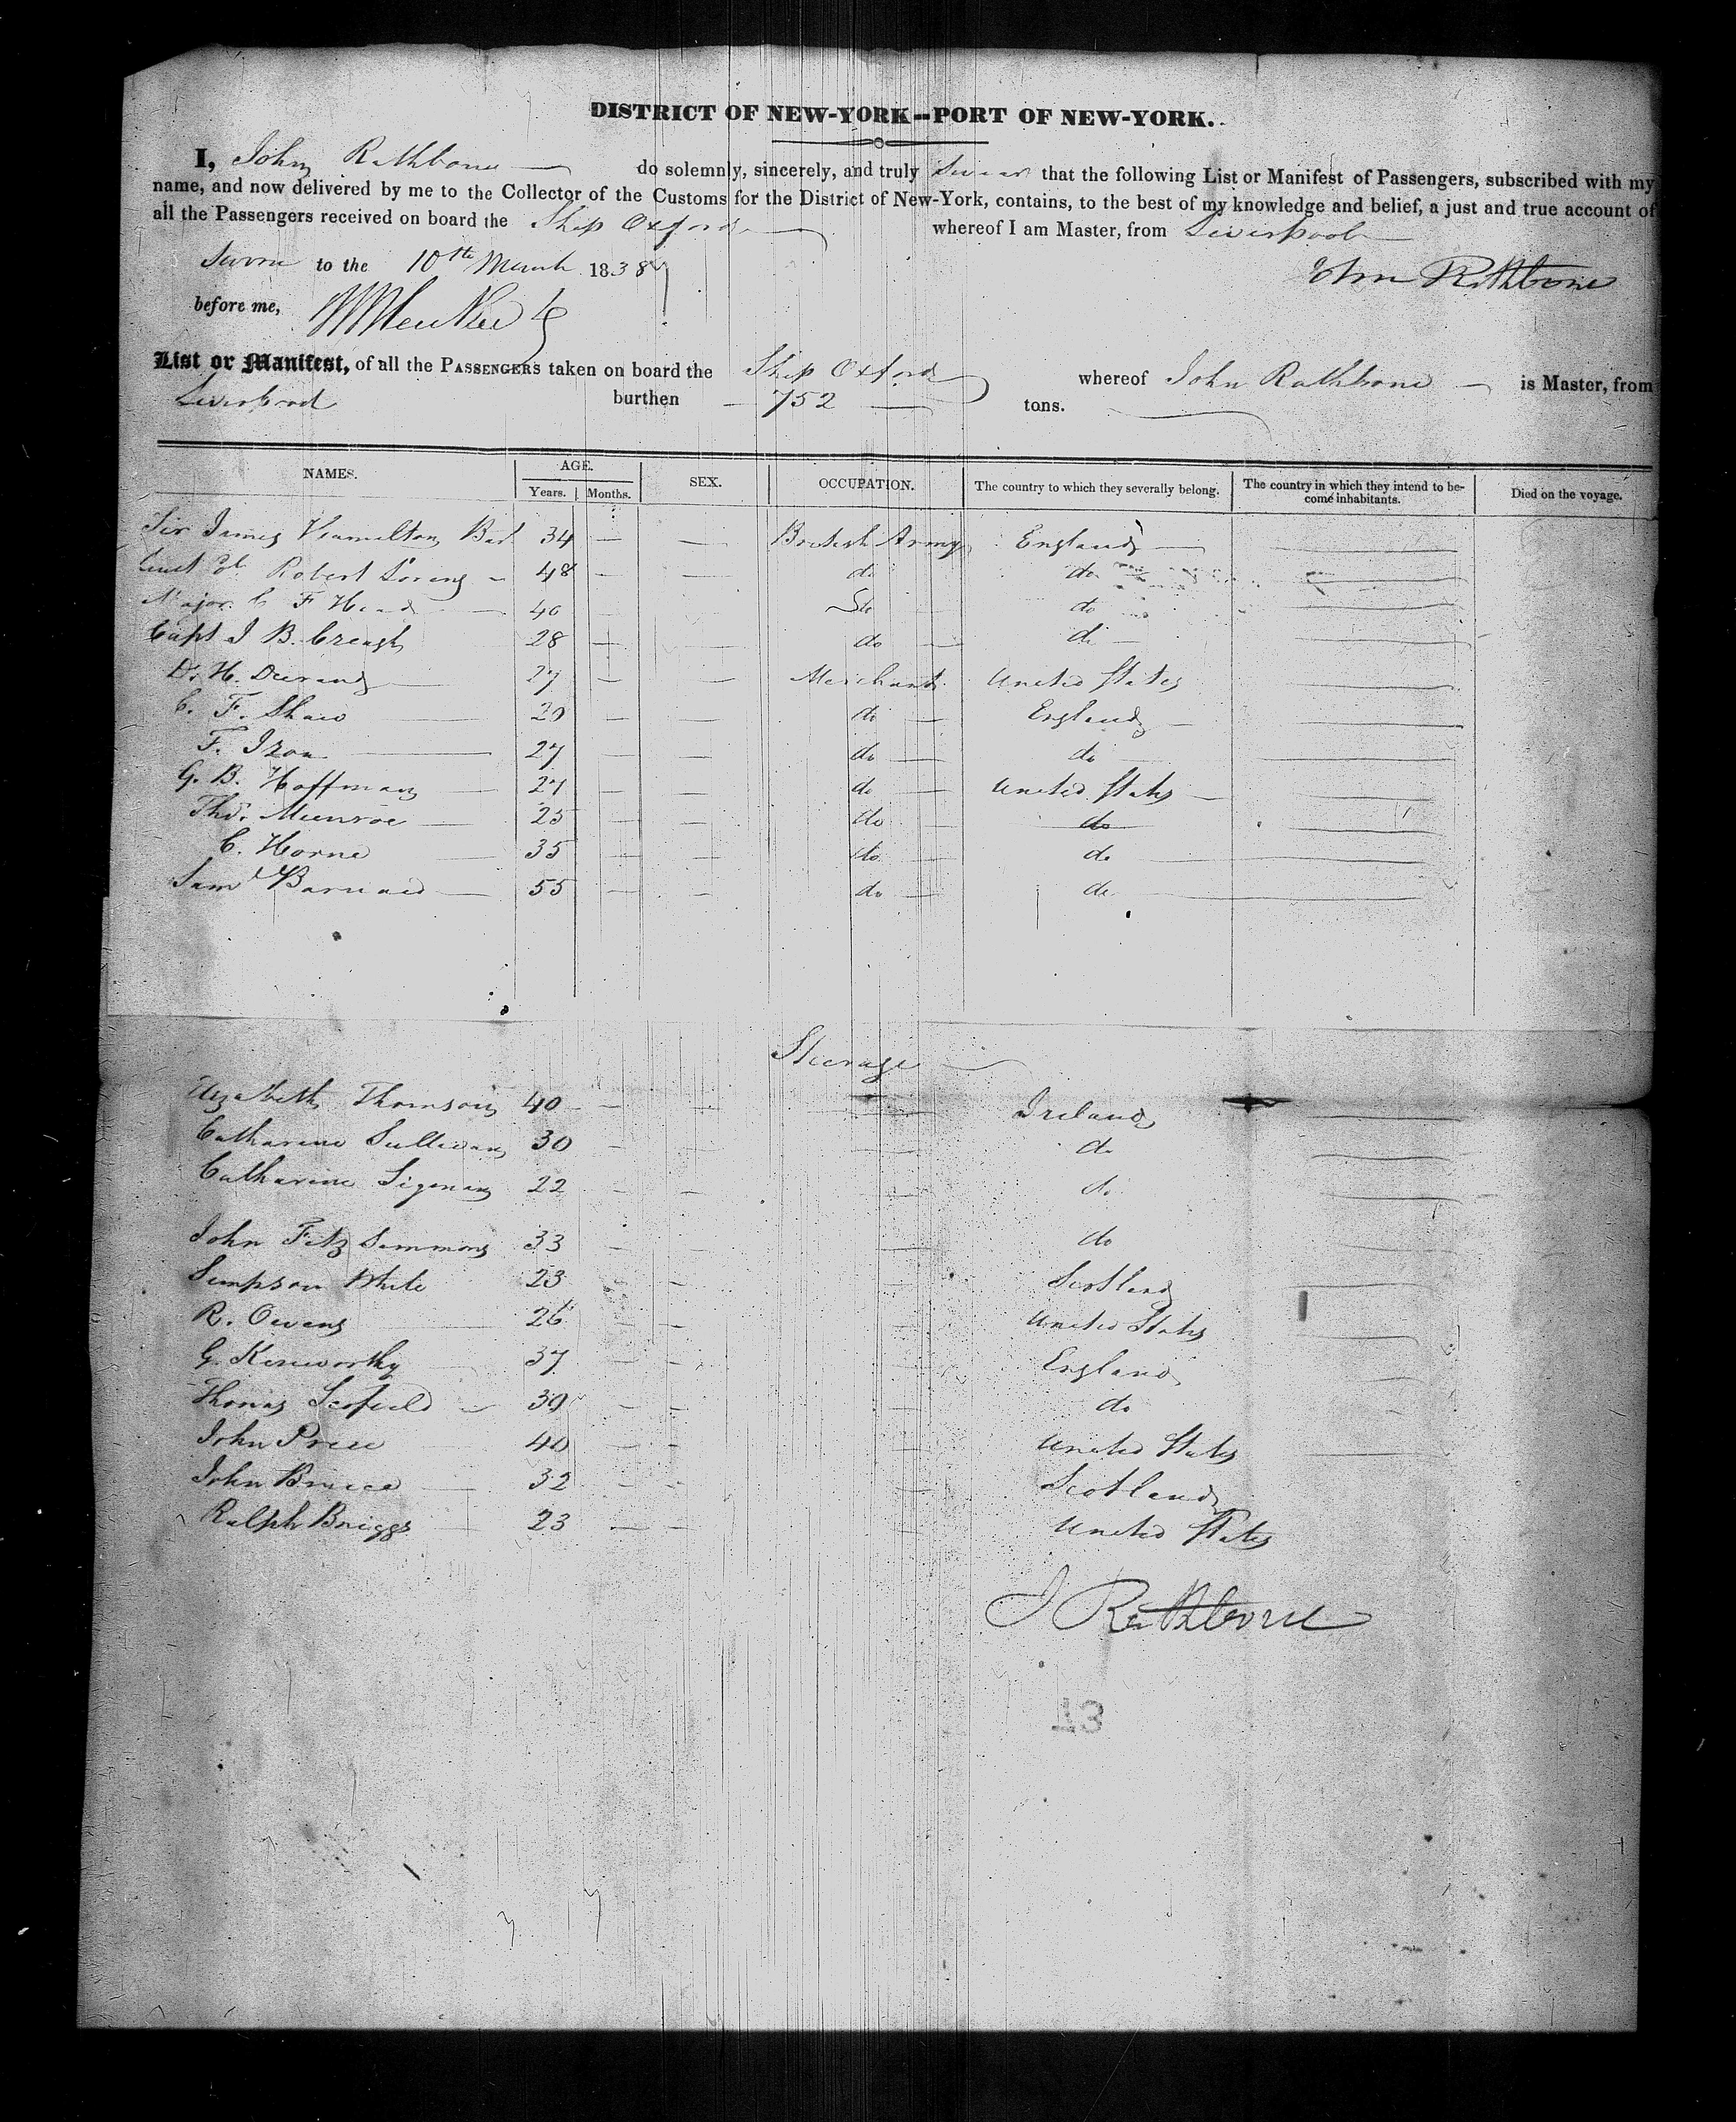 DISTRICT OF NEW-YORK--PORT OF NEW-YORK.
I, John Rathbone do solemnly, sincerely, and truly Swear that the following List or Manifest of Passengers, subscribed with my
name, and now delivered by me to the Collector of the Customs for the District of New-York, contains, to the best of my knowledge and belief, a just and true account of
all the Passengers received on board the Ship Oxford whereof I am Master, from Liverpool
Sworn to the 10th March 1838 John Rathbone
before me,
List or Manifest, of all the PASSENGERS taken on board the Ship Oxford whereof John Rathbone is Master, from
Liverpool burthen 752 tons.
NAMES. AGE. SEX. OCCUPATION. The country to which they severally belong. The country in which they intend to be- Died on the voyage.
Years. Months. come inhabitants.
Sir James Hamilton Bart 34 — — British Army England —
Lieut Col Robert 48 — — do do
Major F Head 40 Do do
Capt J B. Creagh 28 — — do di —
D. H. Durand 27 — — Merchant United States
C. F. Shaw 29 — — do England —
F. Izon 27 — — do do
G. B. Hoffman 27 — — do United States —
Thos. Munroe 25 — — do do
C. Horne 35 — — do do
Saml Barnard 55 — — do do
Steerage
Elizabeth Thomson 40 — Ireland
Catharine Sullivan 30 — do
Catharine 22 — do
John Fitz Simmons 33 — do
Simpson White 23 — Scotland
R. Owens 26 — United States
G. Kenworthy 37 — England
Thomas Scofield 39 — do
John Price 40 — United States
John Bruce 32 — Scotland
Ralph Briggs 23 — United States
J Rathbone
13